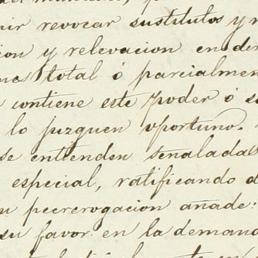 nir revocar sustitutos y n
ion y relevacion en der
me total ó parcialmen
contiene este poder ó s
lo juzguen oportuno.
se entienden señaladas
especial, ratificando d
su pecrerogacion añade:
su favor en la demand